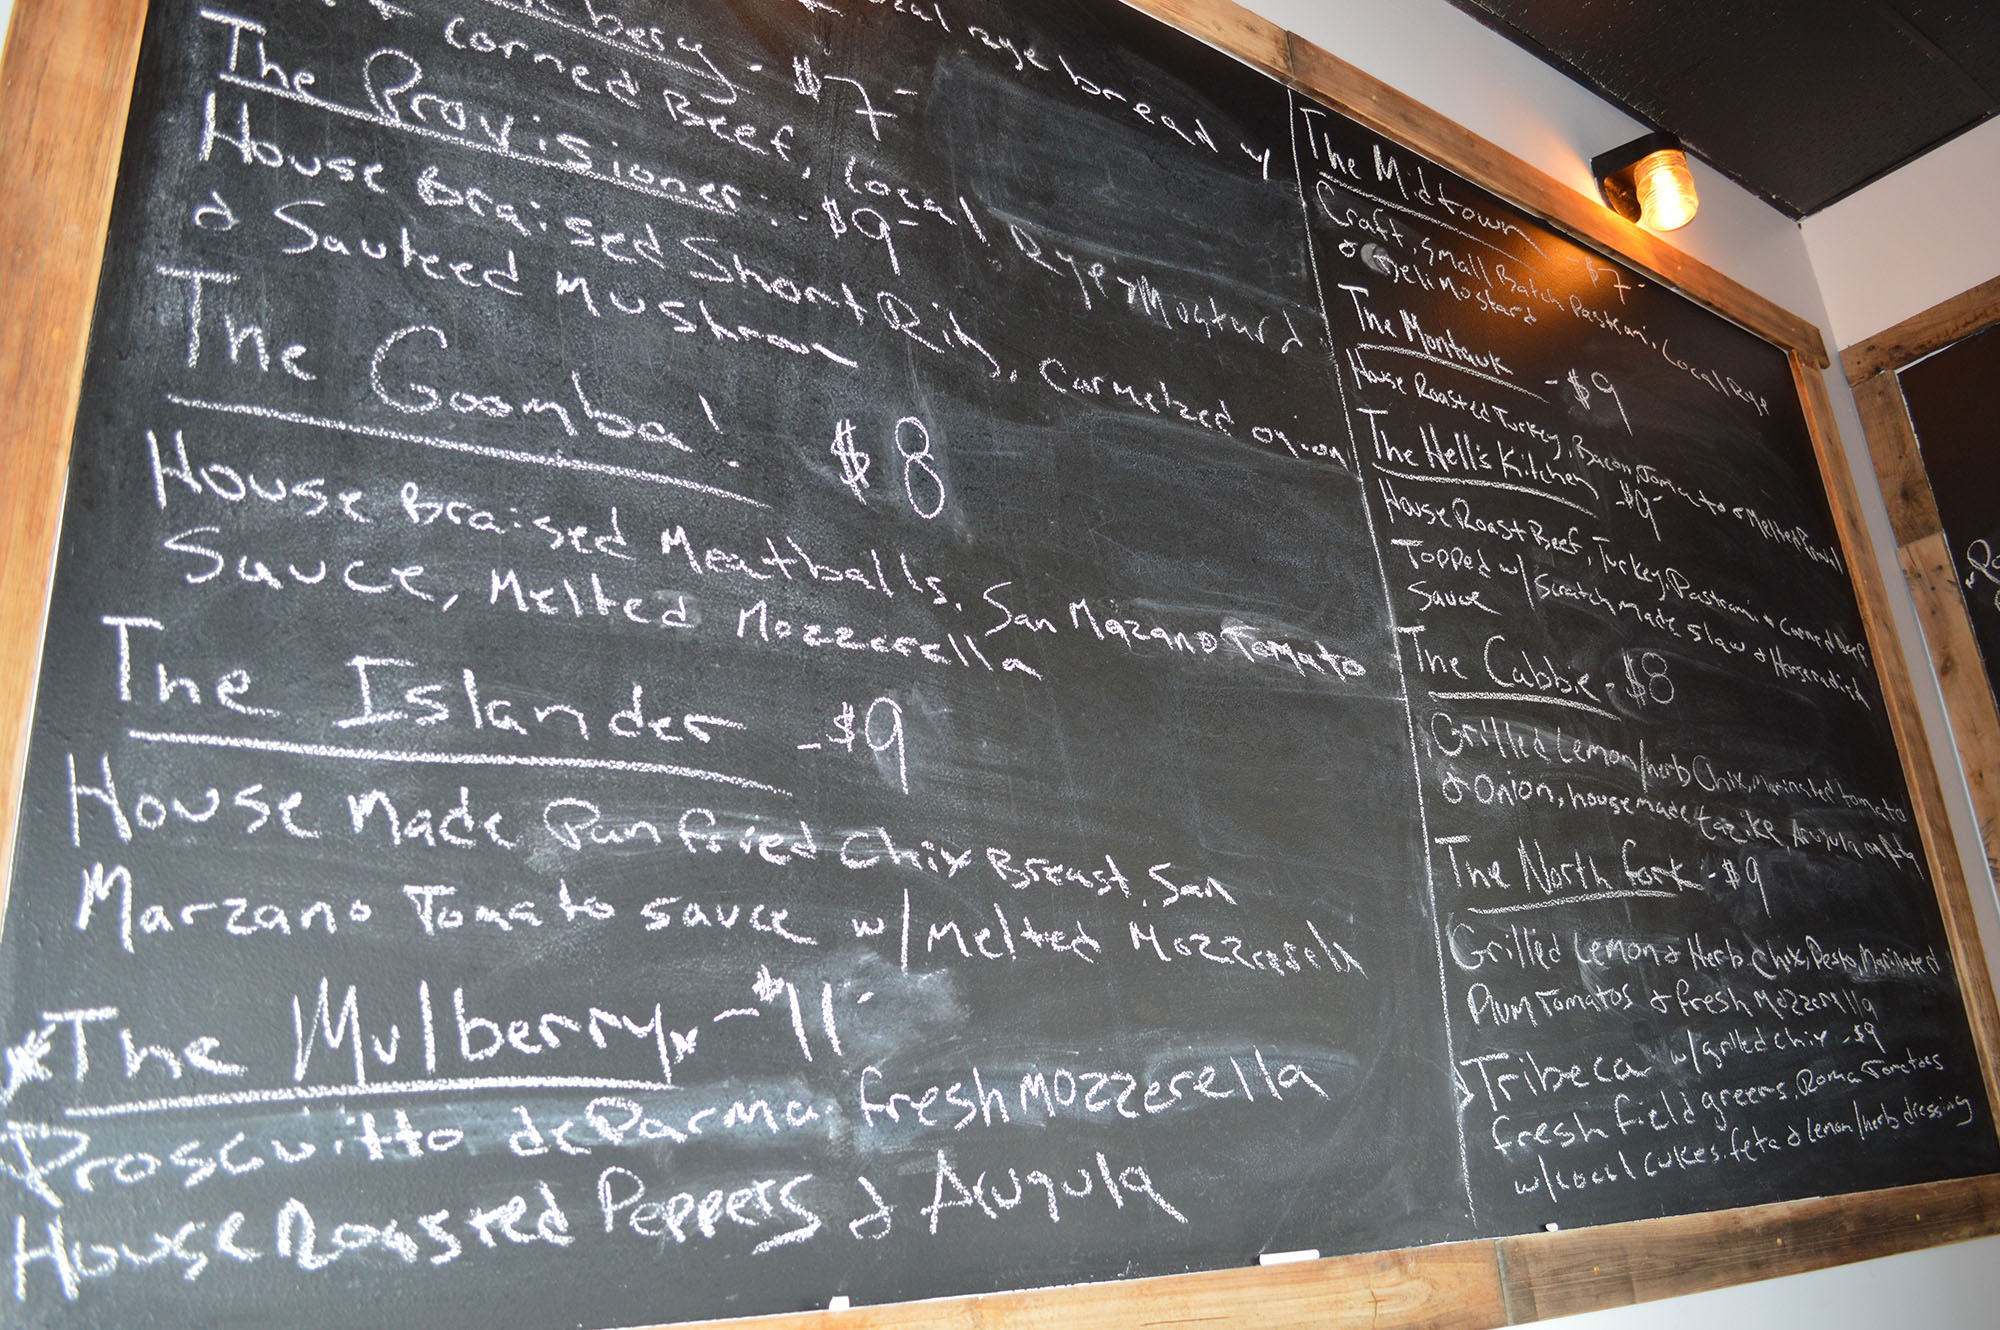 cal rye bread w/
bery - $7-
Corned Beef, Local Rye & Mustard
The Provisioner - $9-
House Braised Short Rib, Carmelized onion
& Sauteed Mushroom
The Goomba! $8
House Braised Meatballs, San Mazano Tomato
Sauce, Melted Mozzerella
The Islander - $9
House Made Pan fried Chix Breast, San
Marzano Tomato sauce w/ Melted Mozzerella
*The Mulberry* - $11-
Proscuitto de Parma, fresh Mozzerella
House Roasted Peppers & Arugula
The Midtown - $7-
Craft, Small Batch Pastrami, Local Rye
& Deli Mustard
The Montauk - $9
House Roasted Turkey, Bacon, Tomato & Melted
The Hell's Kitchen - $9-
House Roast Beef, Turkey, Pastrami & Corned Beef
Topped w/ Scratch made slaw & Horseradish
Sauce
The Cabbie - $8
Grilled Lemon/herb Chix, Marinated tomato
& Onion, house made tazike, Arugula on
The North Fork - $9
Grilled Lemon & Herb Chix, Pesto, Marinated
Plum Tomatos & fresh Mozzerella
Tribeca w/ grilled chix - $9
fresh field greens, Roma Tomatoes
w/ Local cukes, feta & lemon/herb dressing